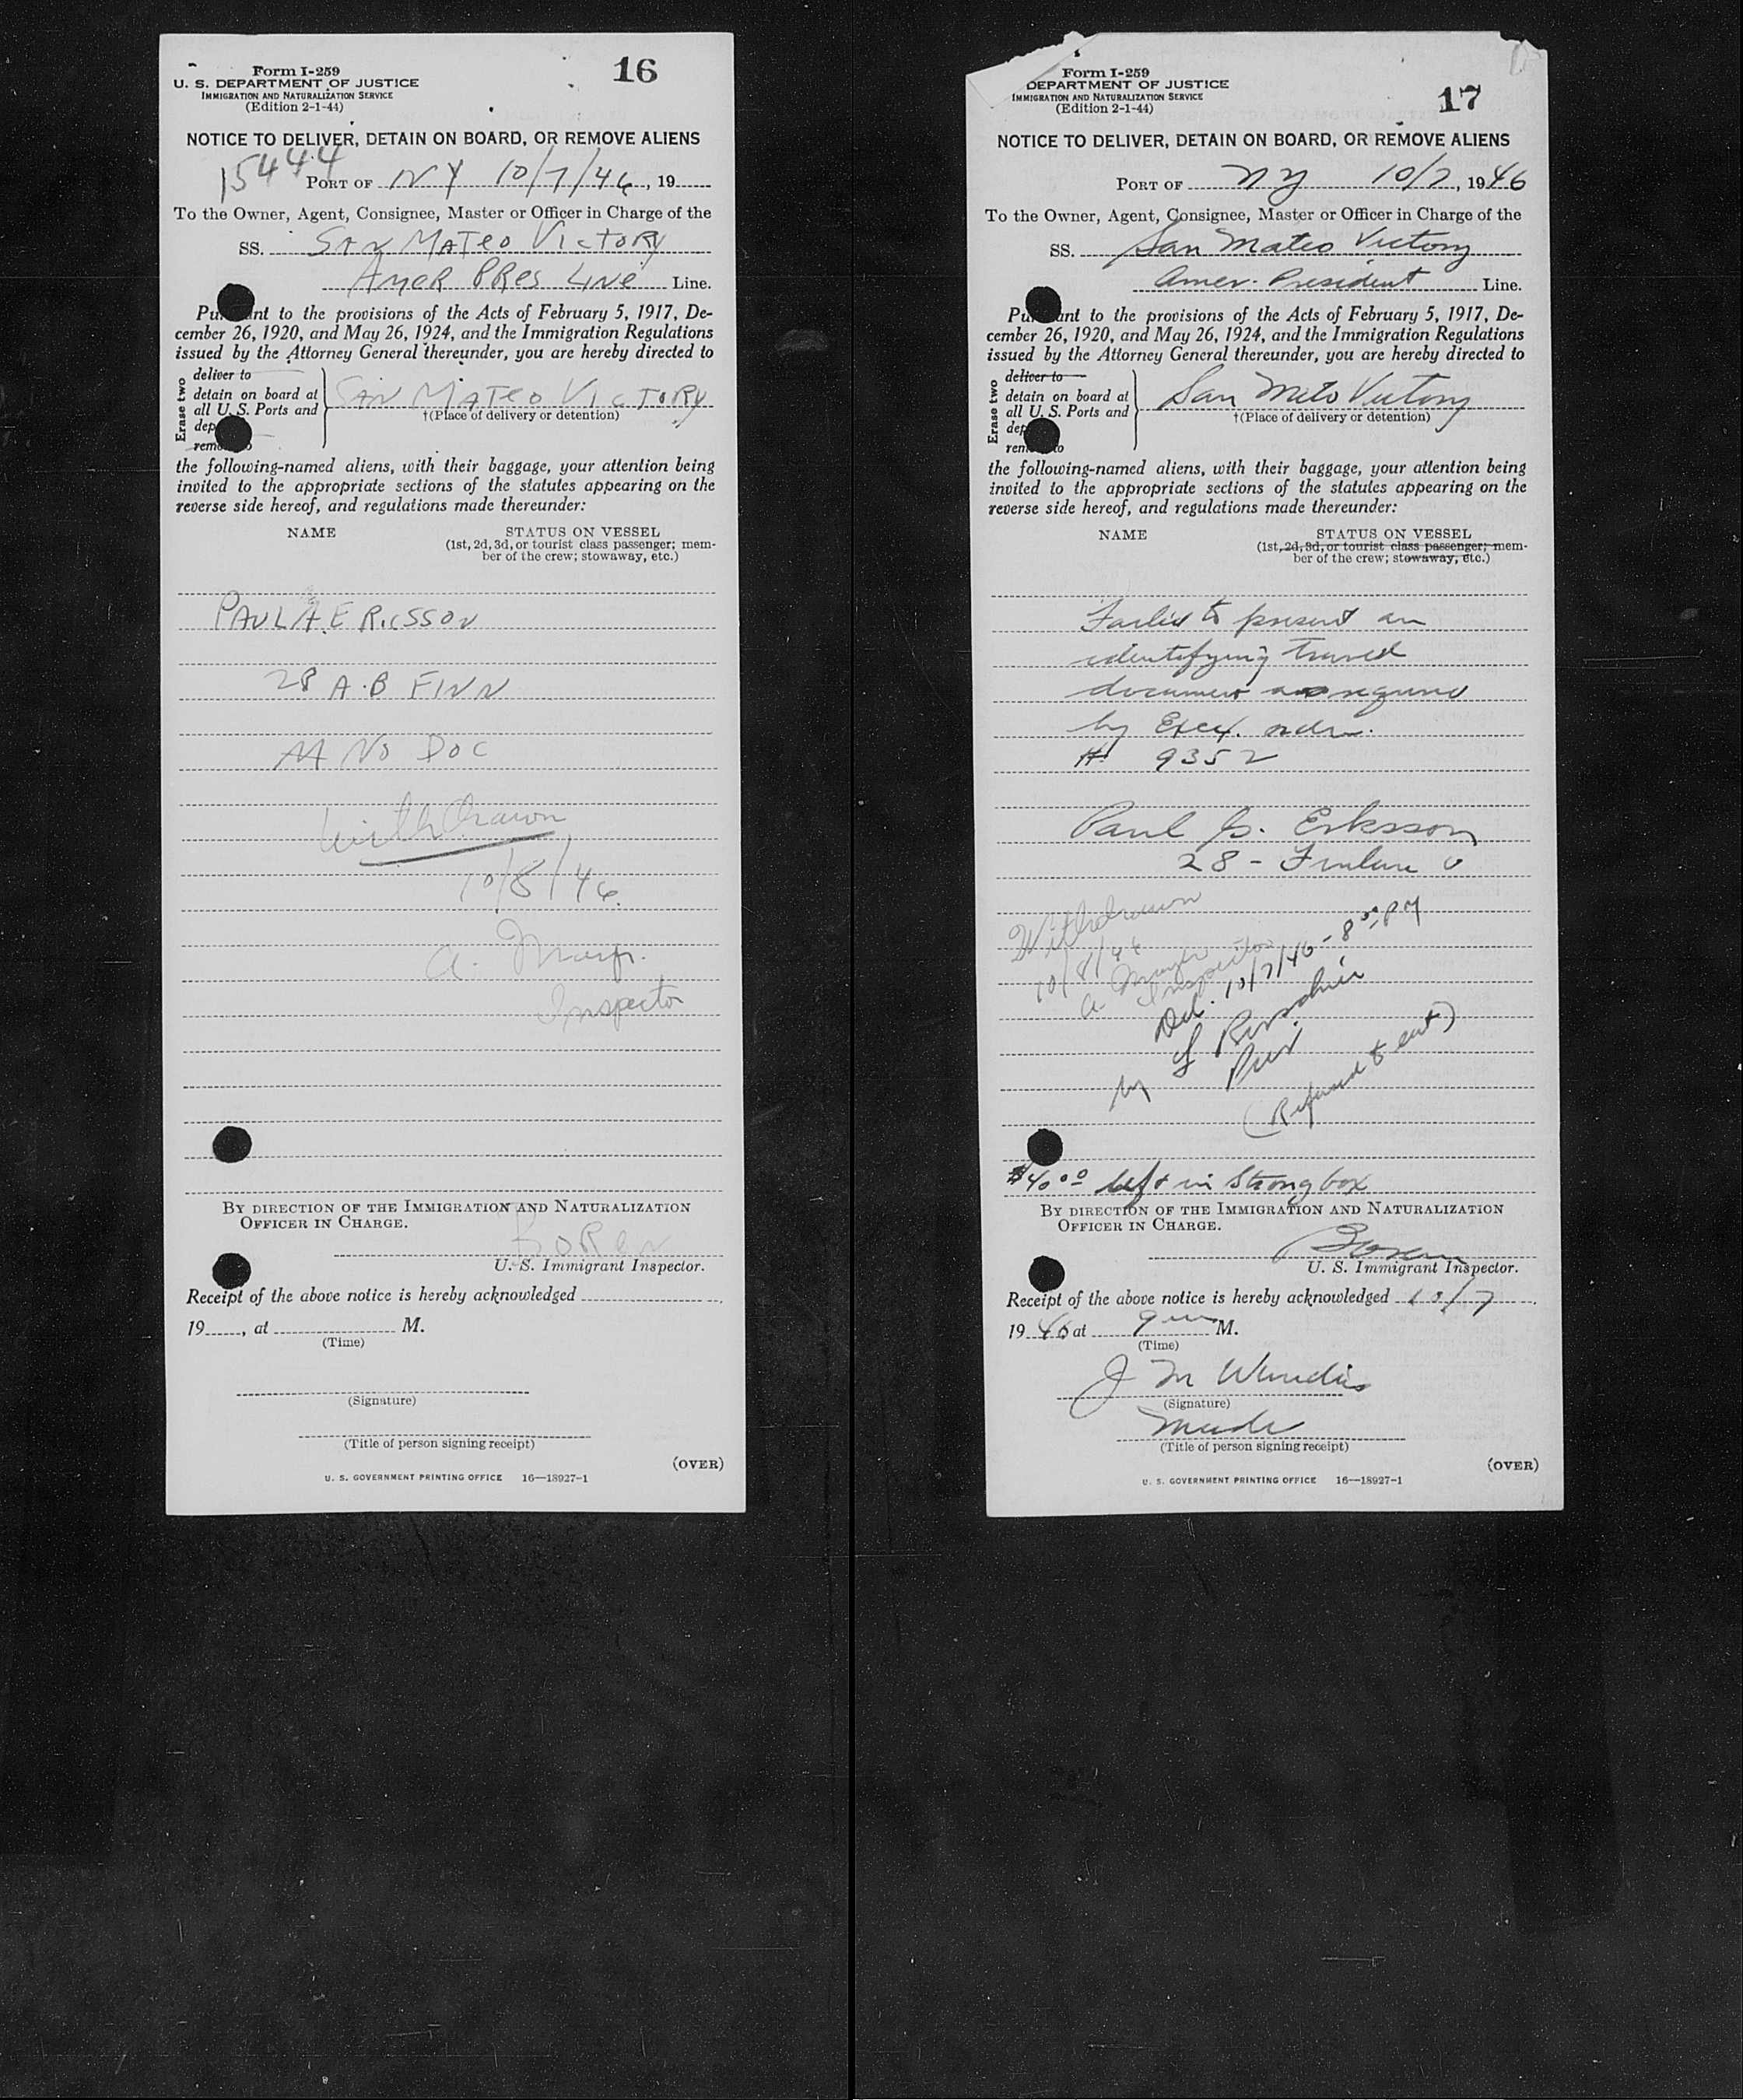 Form I-259
16
U. S. DEPARTMENT OF JUSTICE
IMMIGRATION AND NATURALIZATION SERVICE
(Edition 2-1-44)
NOTICE TO DELIVER, DETAIN ON BOARD, OR REMOVE ALIENS
15444
PORT OF NY 10/7/46, 19
To the Owner, Agent, Consignee, Master or Officer in Charge of the
SS. SAN MATEO VICTORY
AMER PRES LINE Line.
Pu nt to the provisions of the Acts of February 5, 1917, De-
cember 26, 1920, and May 26, 1924, and the Immigration Regulations
issued by the Attorney General thereunder, you are hereby directed to
Erase two
deliver to
detain on board at
all U. S. Ports and
dep
remo o
SAN MATEO VICTORY
†(Place of delivery or detention)
the following-named aliens, with their baggage, your attention being
invited to the appropriate sections of the statutes appearing on the
reverse side hereof, and regulations made thereunder:
NAME STATUS ON VESSEL
(1st, 2d, 3d, or tourist class passenger; mem-
ber of the crew; stowaway, etc.)
PAUL ERICSSON
28 A.B FINN
NO DOC
Withdrawn
10/8/46.
A.
Inspector
BY DIRECTION OF THE IMMIGRATION AND NATURALIZATION
OFFICER IN CHARGE.
U. S. Immigrant Inspector.
Receipt of the above notice is hereby acknowledged
19 , at M.
(Time)
(Signature)
(Title of person signing receipt)
(OVER)
U. S. GOVERNMENT PRINTING OFFICE 16—18927-1
Form I-259
17
DEPARTMENT OF JUSTICE
IMMIGRATION AND NATURALIZATION SERVICE
(Edition 2-1-44)
NOTICE TO DELIVER, DETAIN ON BOARD, OR REMOVE ALIENS
PORT OF NY 10/7, 1946
To the Owner, Agent, Consignee, Master or Officer in Charge of the
SS. San Mateo Victory
Amer. President Line.
Pu ant to the provisions of the Acts of February 5, 1917, De-
cember 26, 1920, and May 26, 1924, and the Immigration Regulations
issued by the Attorney General thereunder, you are hereby directed to
Erase two
deliver to
detain on board at
all U. S. Ports and
dep
rem to
San Mateo Victory
†(Place of delivery or detention)
the following-named aliens, with their baggage, your attention being
invited to the appropriate sections of the statutes appearing on the
reverse side hereof, and regulations made thereunder:
NAME STATUS ON VESSEL
(1st, 2d, 3d, or tourist class passenger; mem-
ber of the crew; stowaway, etc.)
Failed to present an
identifying travel
document as required
by Exec. order
# 9352
Paul Eriksson
28 -
Withdrawn
10/8/46
A.
Inspector
Del. 10/7/46 - 8 PM
by
(Refused to eat)
$40.00 left in Strong box
BY DIRECTION OF THE IMMIGRATION AND NATURALIZATION
OFFICER IN CHARGE.
U. S. Immigrant Inspector.
Receipt of the above notice is hereby acknowledged 10/7
1946 at 9 M.
(Time)
J M
(Signature)
(Title of person signing receipt)
(OVER)
U. S. GOVERNMENT PRINTING OFFICE 16—18927-1